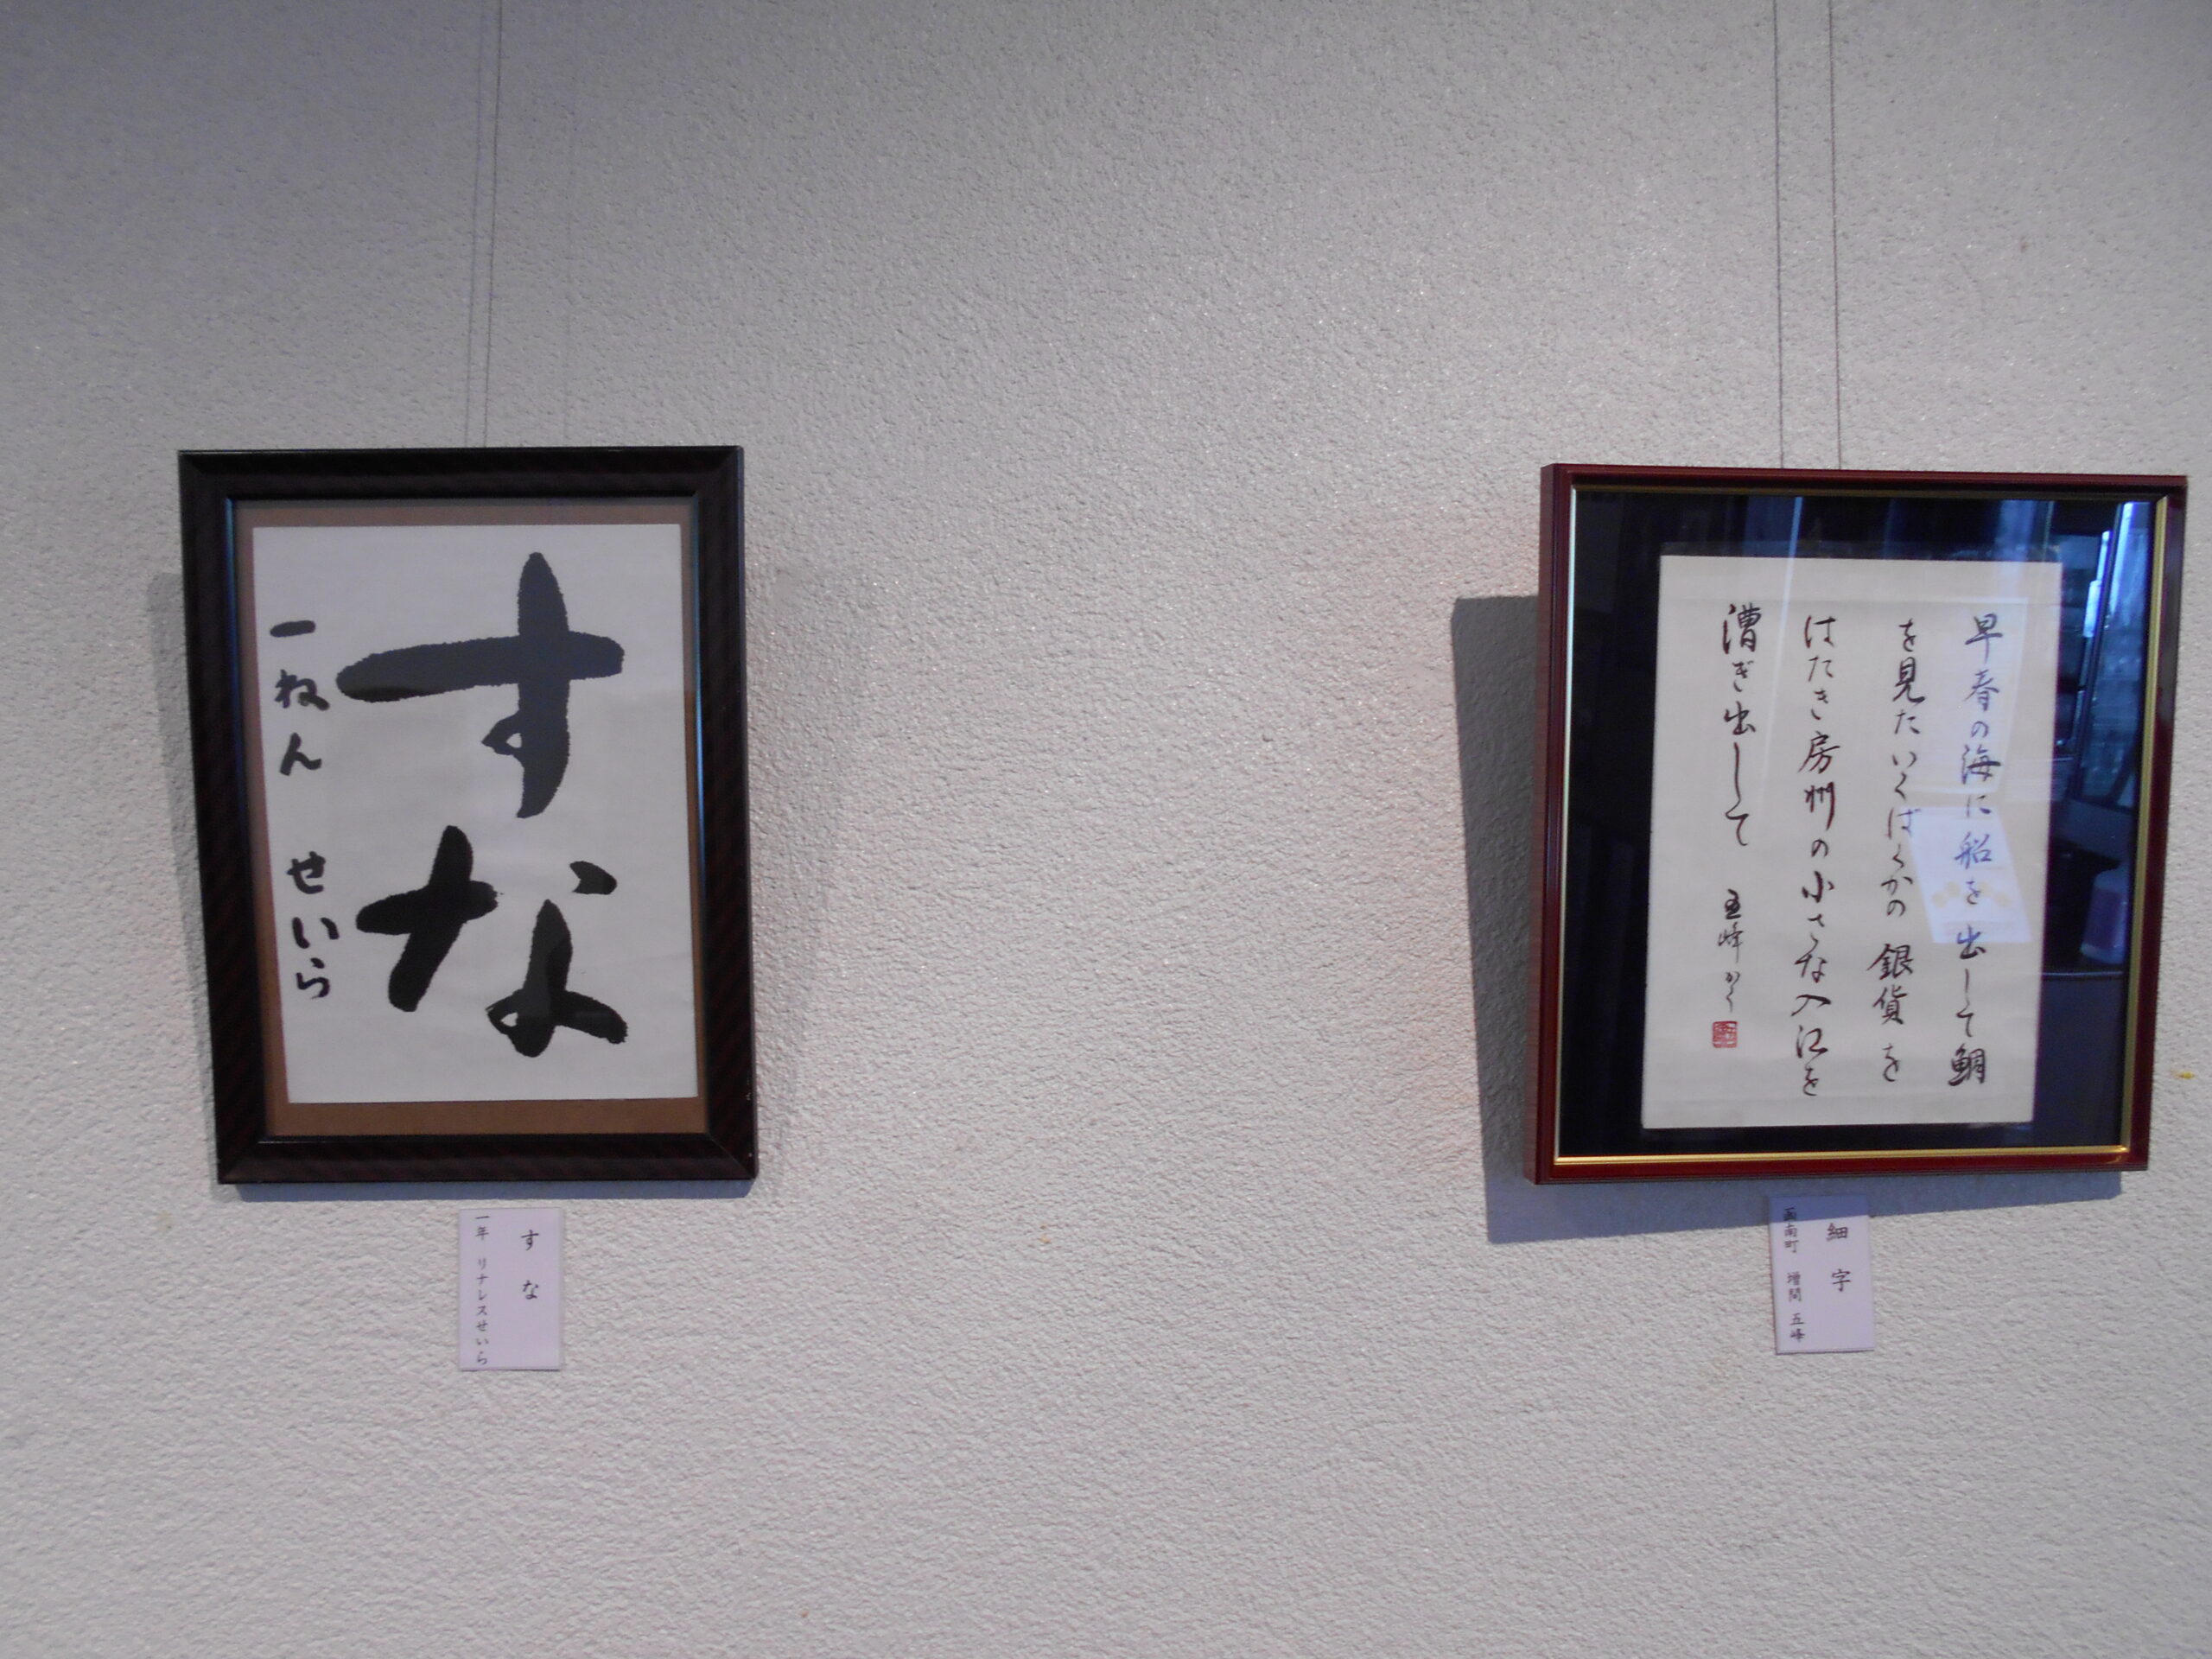 すな
一ねん せいら
すな
一年 リナレスせいら
早春の海に船を出して鯛
を見たいくばくかの銀貨を
はたき房州の小さな入江を
漕ぎ出して 五峰かく
細字
函南町 増間 五峰